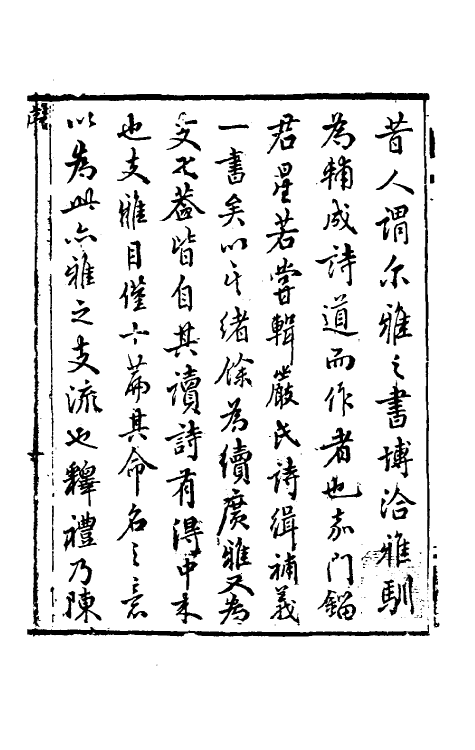 昔人謂尔雅之書博洽雅馴
為輔成詩道而作者也门鎦
君星若嘗輯嚴氏詩緝補義
一書矣以其緒餘為續廣雅又為
支疋蓋皆自其讀詩有得中来
也支雅目僅十篇其命名之意
以為此亦雅之支流也釋禮乃陳